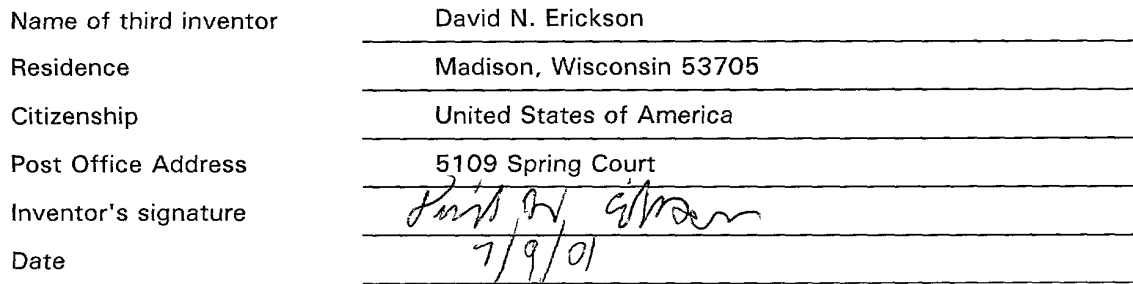 Name of third inventor David N. Erickson
Residence Madison, Wisconsin 53705
Citizenship United States of America
Post Office Address 5109 Spring Court
Inventor's signature
Date 7/9/01